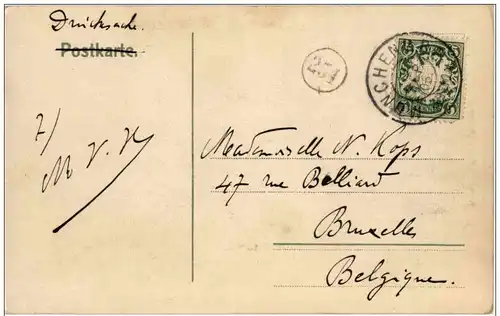 Drucksache.
Postkarte.
251
MÜNCHEN
BAYERN
7/
M. V. K
Mademoiselle N. Kops
47 rue Belliard
Bruxelles
Belgique.